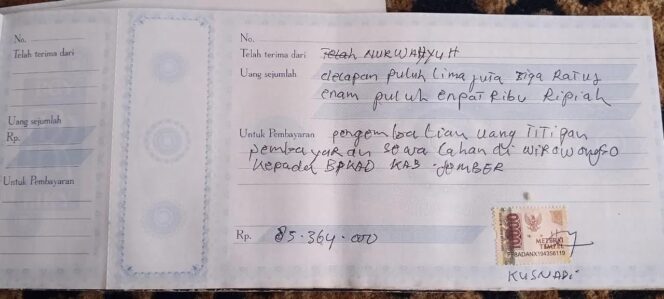 No.
Telah terima dari
Uang sejumlah
Rp.
Untuk Pembayaran
No.
Telah terima dari Telah NURWAHYUH
Uang sejumlah delapan puluh Lima juta Tiga Ratus
enam puluh enpat Ribu Ripiah
Untuk Pembayaran pengembalian uang TITIPAN
pembayaran sewa Lahan di WIROWONGSO
Kepada BPKAD KAB JEMBER
Rp. 85.364.000
10000
METERAI
TEMPEL
KUSNADI